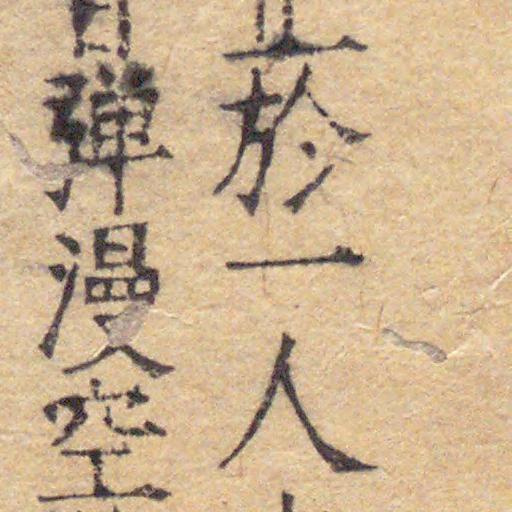 於一人
彈漫空